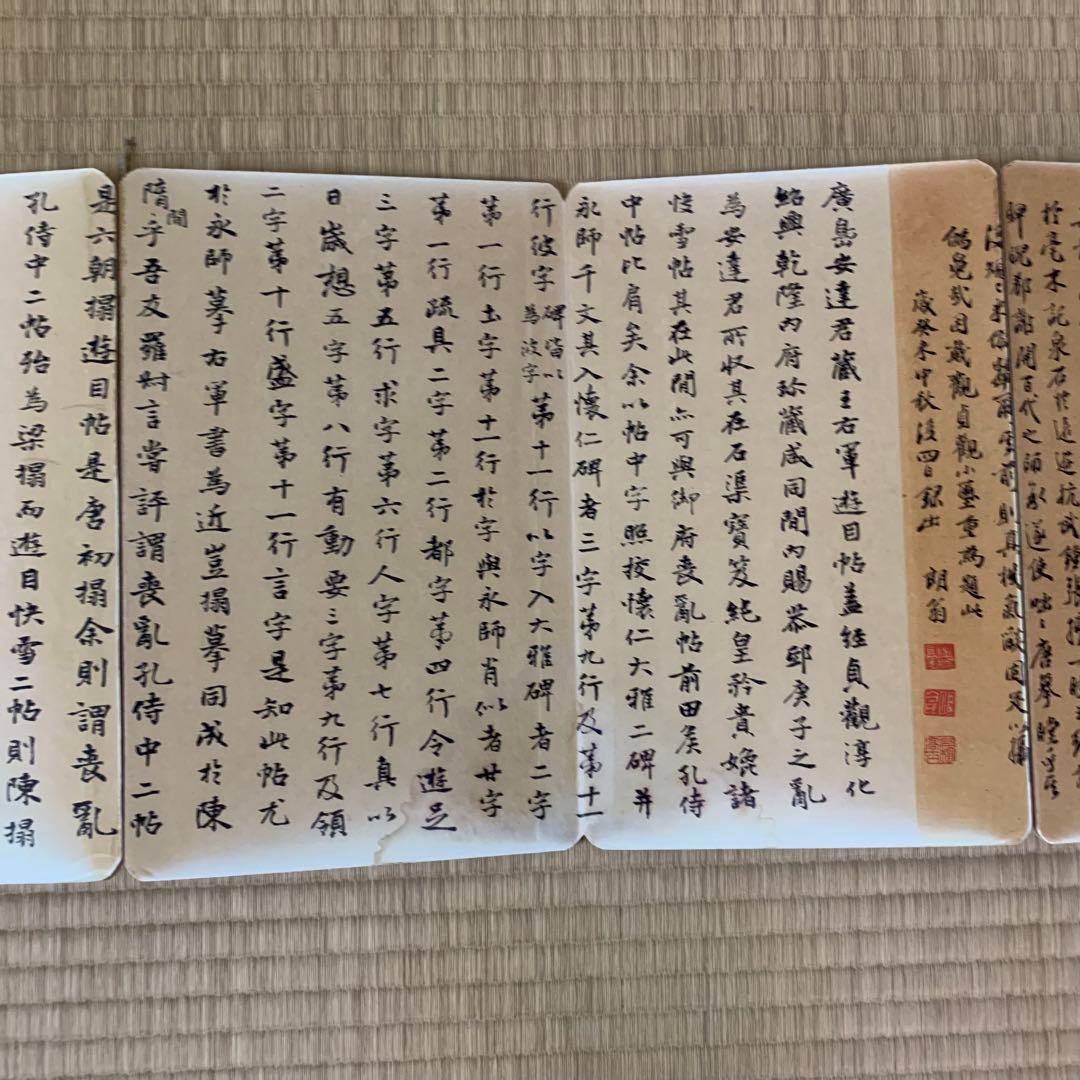 於亳末記泉石於遠近抗武鍾張擴一時
睥睨都謝開百代之師承遂使唐摹
儲兔我因戲觀貞觀小璽重為題此
歲癸未中秋後四日録出 朗翁
廣島安達君藏王右軍遊目帖蓋經貞觀淳化
紹興乾隆內府珍藏咸同間內賜恭邸庚子之亂
為安達君所收其在石渠寶笈純皇矜貴媲諸
快雪帖其在此間亦可與御府喪亂帖前田矦孔侍
中帖比肩矣余以帖中字照挍懷仁大雅二碑并
永師千文其入懷仁碑者三字第九行及第十一
行彼字碑皆以為波字第十一行以字入大雅碑者二字
第一行土字第十一行於字與永師肖似者廿字
第一行疏具二字第二行都字第四行令遊足
三字第五行求字第六行人字第七行真以
日歲想五字第八行有動要三字第九行及領
二字第十行盛字第十一行言字是知此帖尤
於永師摹右軍書為近豈搨摹同成於陳
隋間乎吾友羅尗言嘗評謂喪亂孔侍中二帖
是六朝搨遊目帖是唐初搨余則謂喪亂
孔侍中二帖殆為梁搨而遊目快雪二帖則陳搨